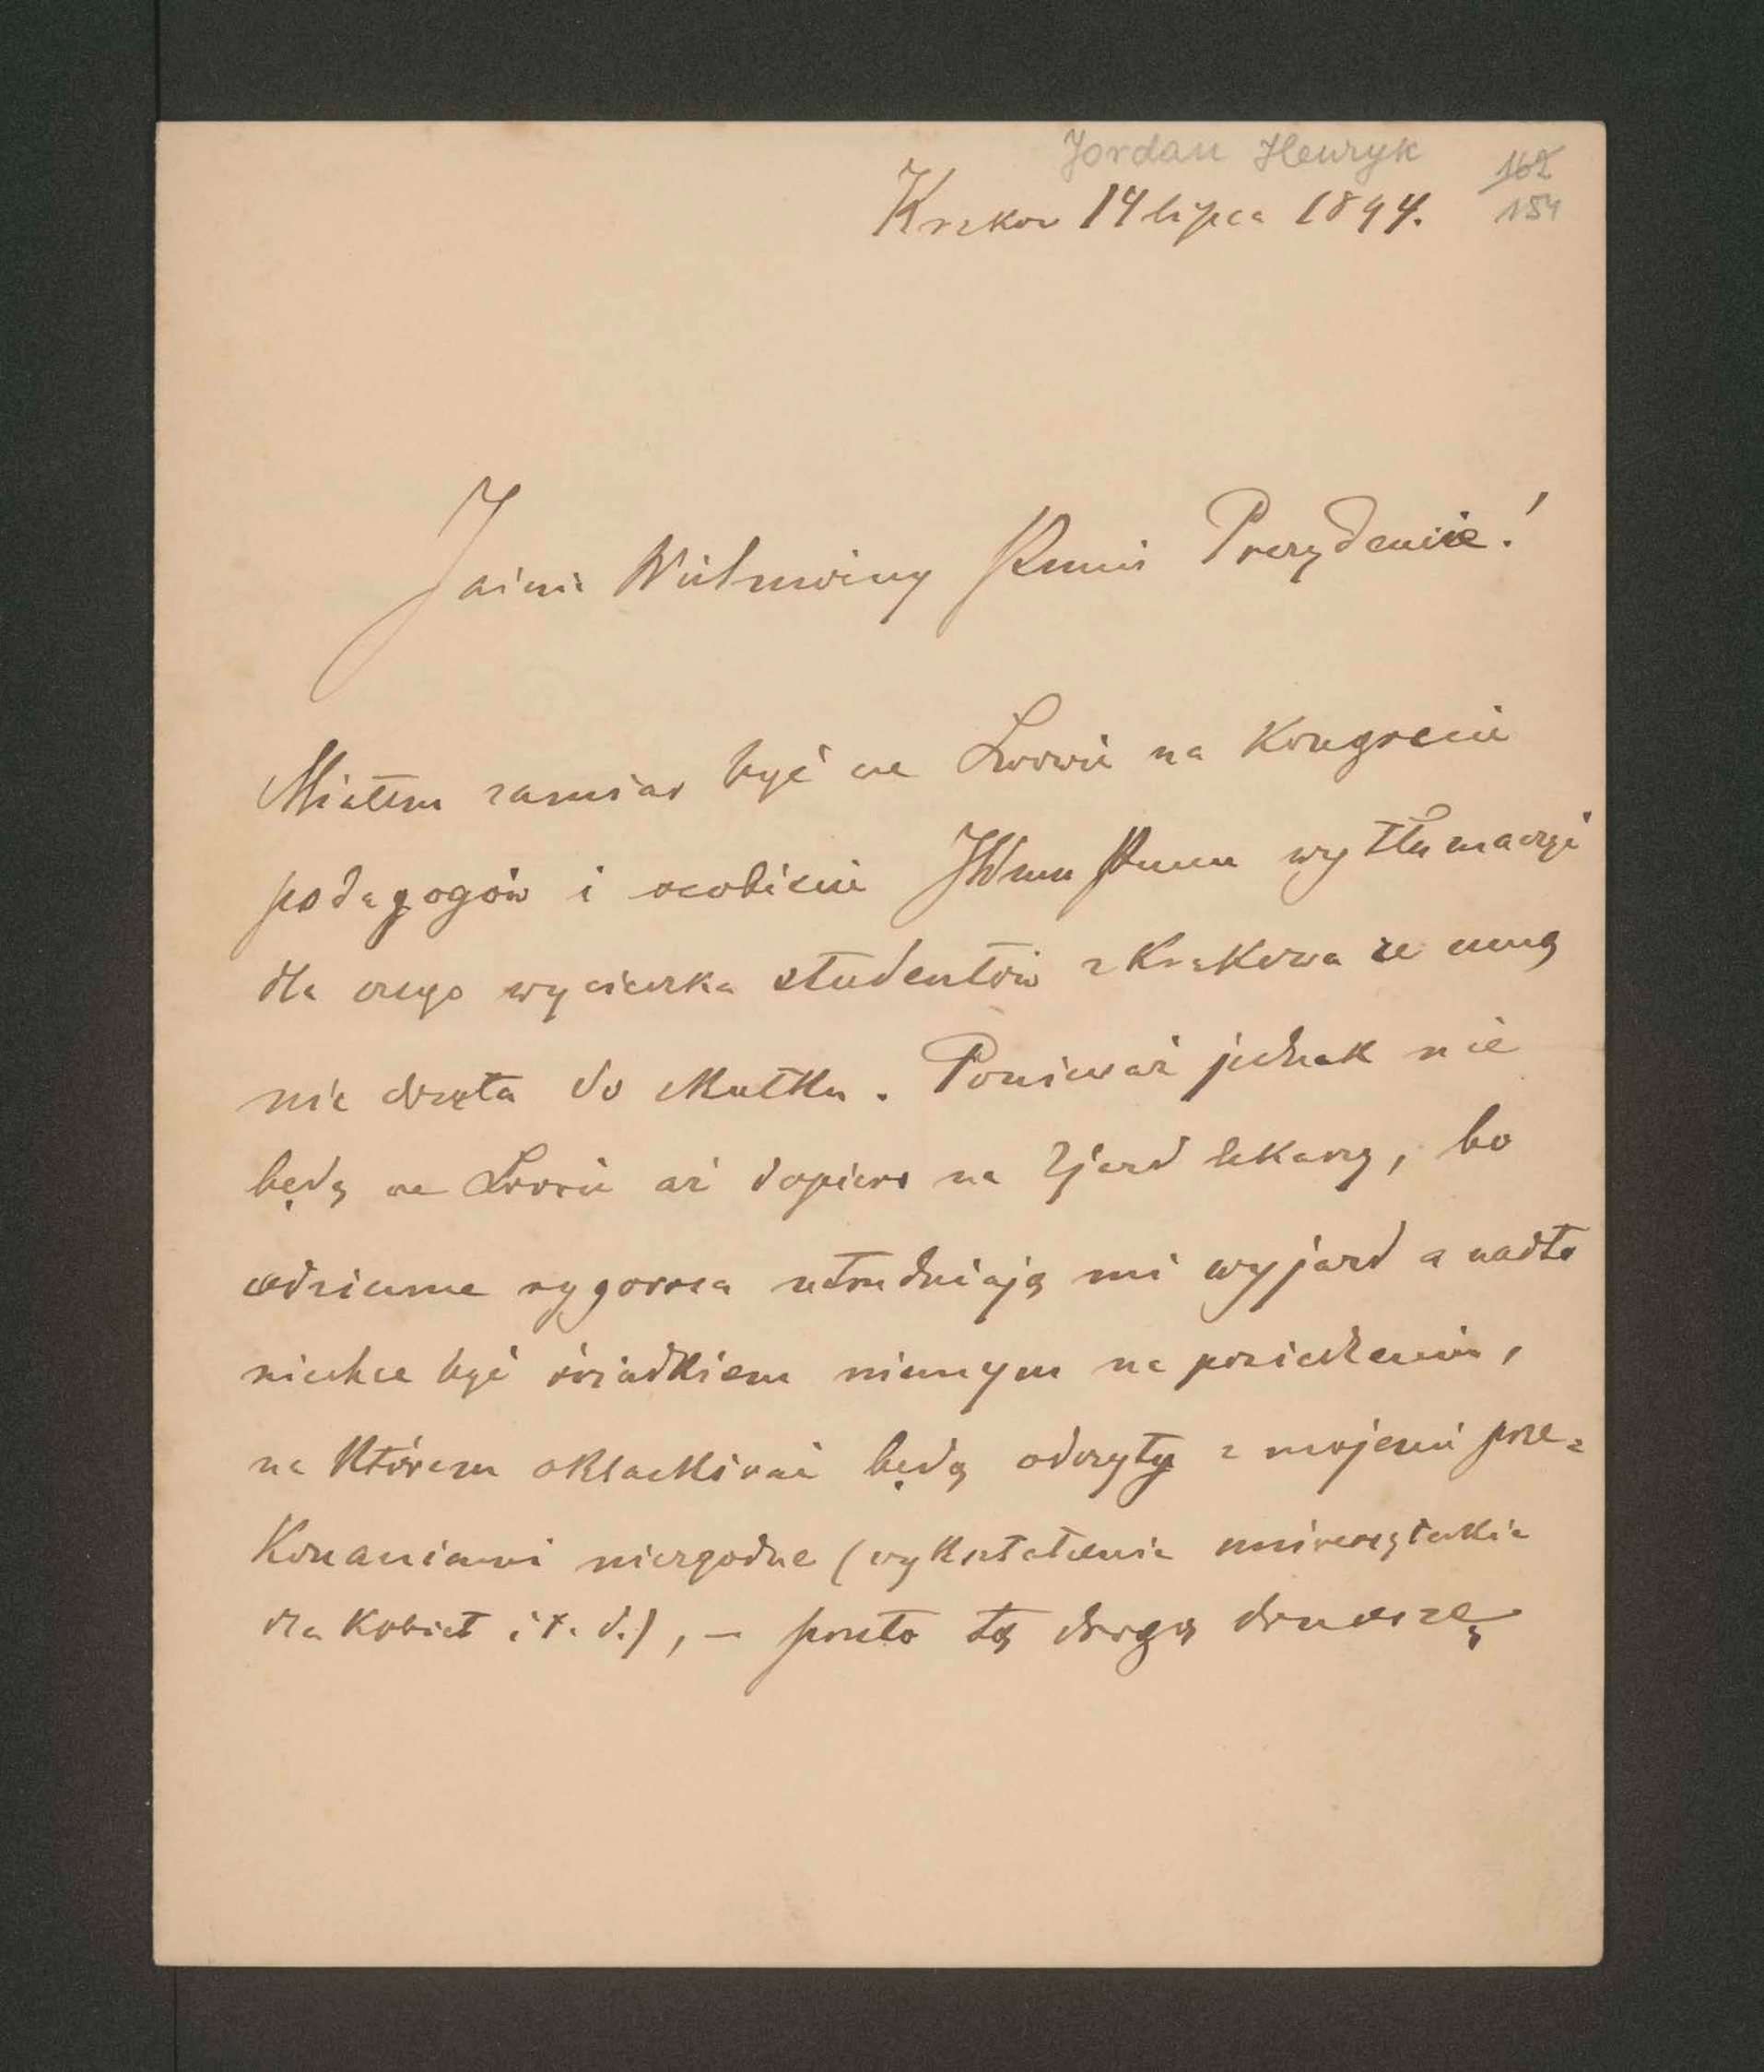 Jordan Henryk
162
154
Krakow 14 lipca 1894.
Jaśnie Wielmożny Panie Prezydencie!
Miałem zamiar być we Lwowie na Kongresie
pedagogów i osobiście JWmu Panu wytłumaczyć
dla czego wycieczka studentów z Krakowa ze mną
nie doszła do skutku. Ponieważ jednak nie
będę we Lwowie aż dopiero na Zjazd lekarzy, bo
codzienne rygoroza utrudniają mi wyjazd a nadto
niechce być świadkiem niemym na posiedzeniu,
na którem oklaskiwać będą odczyty z mojemi prze=
konaniami niezgodne (wykształcenie uniwersyteckie
dla kobiet i t. d.), – przeto tą drogą donoszę